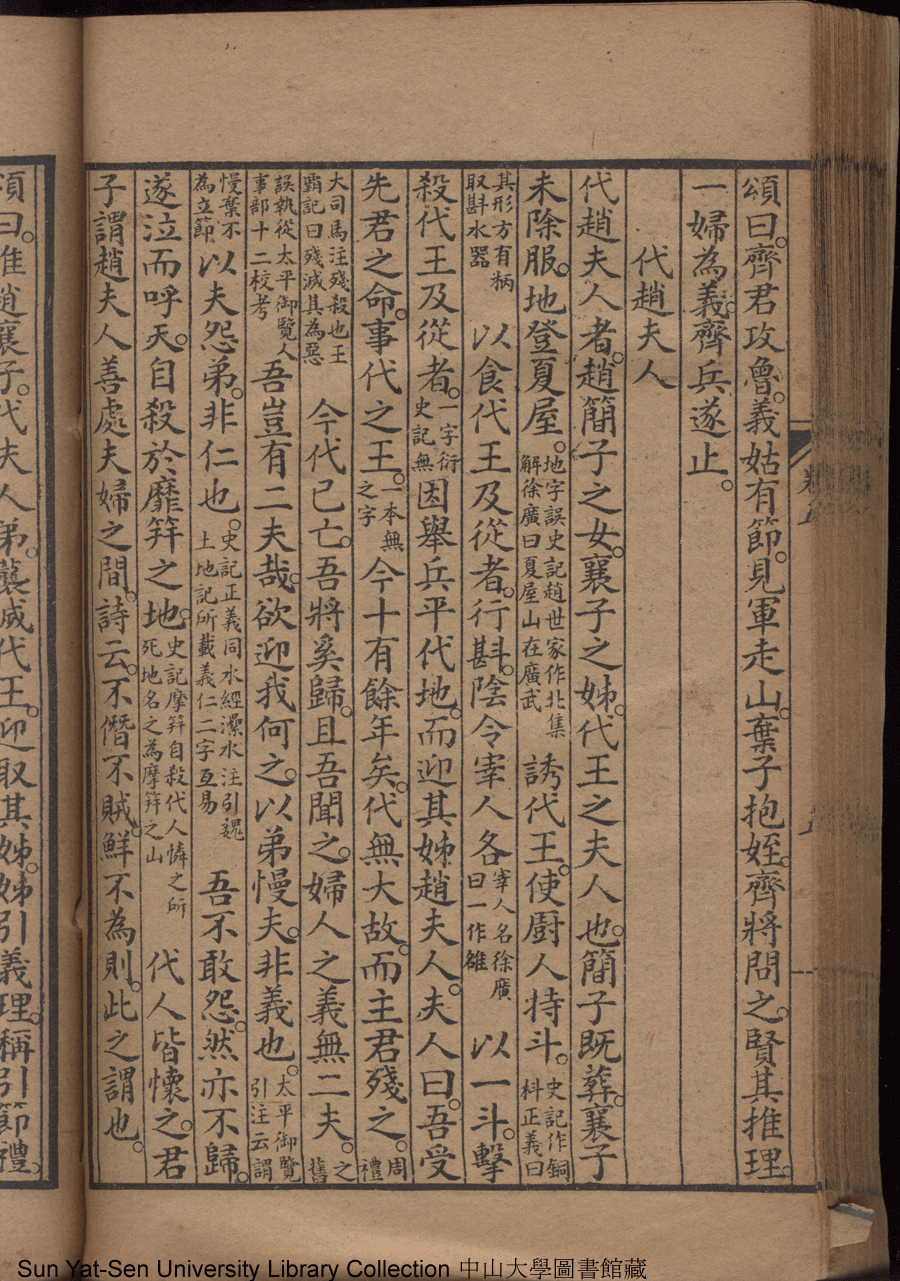 頌曰。齊君攻魯。義姑有節。見軍走山。棄子抱姪。齊將問之。賢其推理。
一婦為義。齊兵遂止。
代趙夫人
代趙夫人者。趙簡子之女。襄子之姊。代王之夫人也。簡子既葬。襄子
未除服。地登夏屋。地字誤史記趙世家作北集解徐廣曰夏屋山在廣武誘代王。使厨人持斗。史記作銅枓正義曰
其形方有柄取斟水器以食代王及從者。行斟。陰令宰人各宰人名徐廣曰一作雒以一斗。擊
殺代王及從者。一字衍史記無因舉兵平代地。而迎其姊趙夫人。夫人曰。吾受
先君之命。事代之王。一本無之字今十有餘年矣。代無大故。而主君殘之。周禮
大司馬注殘殺也王霸記曰殘滅其為惡今代已亡。吾將奚歸。且吾聞之。婦人之義無二夫。之舊
誤執從太平御覽人事部十二校考吾豈有二夫哉。欲迎我何之。以弟慢夫。非義也。太平御覽引注云謂
慢棄不為立節以夫怨弟。非仁也。史記正義同水經灅水注引魏土地記所載義仁二字互易吾不敢怨。然亦不歸。
遂泣而呼天。自殺於靡筓之地。史記摩筓自殺代人憐之所死地名之為摩筓之山代人皆懷之。君
子謂趙夫人善處夫婦之間。詩云。不僭不賊。鮮不為則。此之謂也。
頌曰。惟趙襄子。代夫人弟。襲滅代王。迎取其姊。姊引義理。稱引節禮。
Sun Yat-Sen University Library Collection 中山大學圖書館藏